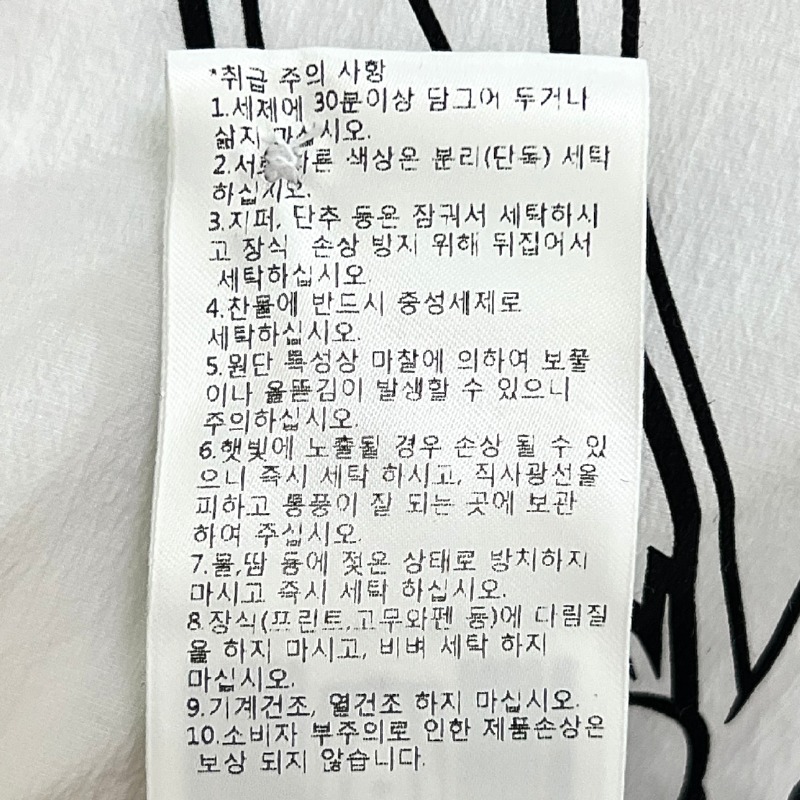 *취급 주의 사항
1.세제에 30분이상 담그어 두거나
삶지 마십시오.
2.서로 다른 색상은 분리(단독) 세탁
하십시오.
3.지퍼, 단추 등은 잠궈서 세탁하시
고 장식 손상 방지 위해 뒤집어서
세탁하십시오.
4.찬물에 반드시 중성세제로
세탁하십시오.
5.원단 특성상 마찰에 의하여 보풀
이나 올뜯김이 발생할 수 있으니
주의하십시오.
6.햇빛에 노출될 경우 손상 될 수 있
으니 즉시 세탁 하시고, 직사광선을
피하고 통풍이 잘 되는 곳에 보관
하여 주십시오.
7.물,땀 등에 젖은 상태로 방치하지
마시고 즉시 세탁 하십시오.
8.장식(프린트,고무와펜 등)에 다림질
을 하지 마시고, 비벼 세탁 하지
마십시오.
9.기계건조, 열건조 하지 마십시오.
10.소비자 부주의로 인한 제품손상은
보상 되지 않습니다.